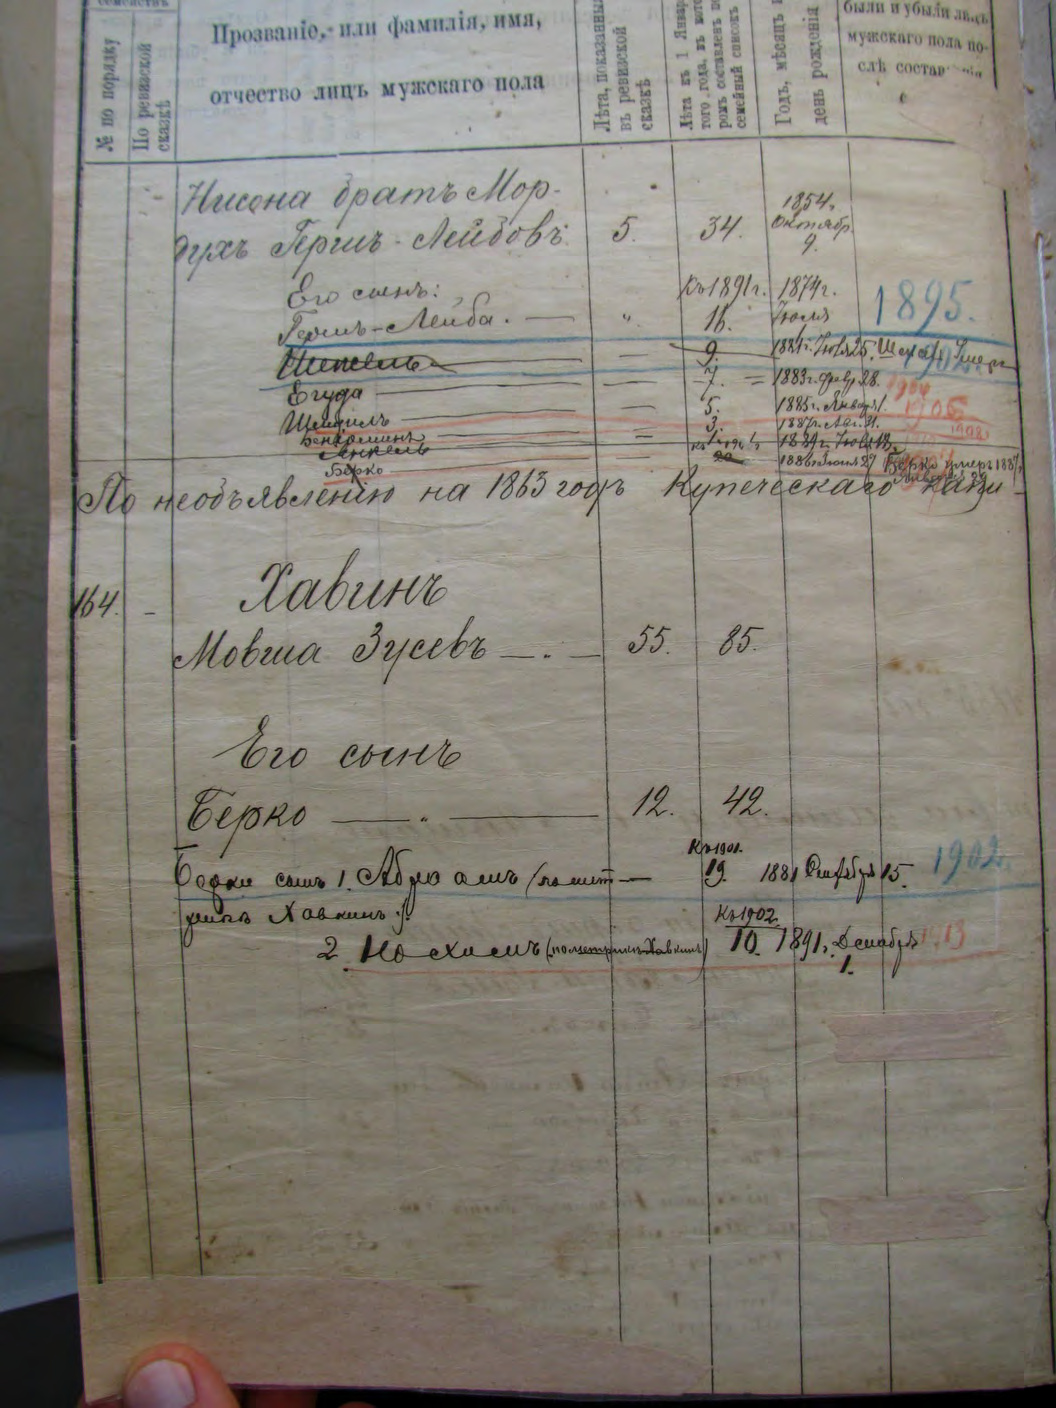 № по порядку
По ревизской сказкѣ
Прозваніе, или фамилія, имя,
отчество лицъ мужскаго пола
Лѣта, показанныя
въ ревизской
сказкѣ
Лѣта къ 1 Январ
того года, въ кото
ромъ составленъ по
семейный списокъ
Годъ, мѣсяцъ и
день рожденія
были и убыли лицъ
мужскаго пола по-
слѣ составленія
Нисона братъ Мор-
духъ Гершъ-Лейбовъ 5. 34. 1854 г. Октябр. 9.
Его сынъ: Къ 1891 г. 1874 г. 1895.
Гершъ-Лейба. — „ 16. Іюля
9. 1902
Егуда — 7. 1883 г. Февр. 28.
Шмуилъ — 5. 1885 г. Января 1. 1906
Беніоминъ 3. 1887 г. Авг. 31. 1908
Янкель 1889 г. Іюля 18.
Берко 1886 г. Іюня 27 Берко умеръ 1887 г.
По необъявленію на 1863 годъ Купеческаго капи-
164. - Хавинъ
Мовша Зусевъ — . — 55. 85.
Его сынъ
Берко — „ — 12. 42.
Къ 1901. 1902.
Берки сынъ 1. Абрамъ (по мет- 19. 1881 Сентября 15.
рикѣ Хавкинъ). Къ 1902.
2. Носхимъ (по метрикѣ Хавкинъ) 10. 1891 г. Декабря 1913
1.